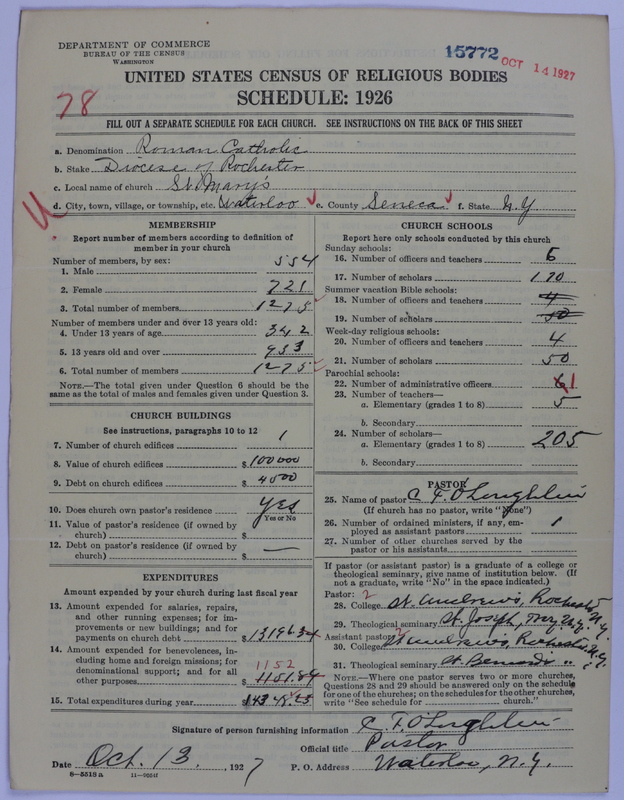 DEPARTMENT OF COMMERCE
BUREAU OF THE CENSUS
WASHINGTON
15772 OCT 14 1927
UNITED STATES CENSUS OF RELIGIOUS BODIES
SCHEDULE: 1926
78
FILL OUT A SEPARATE SCHEDULE FOR EACH CHURCH. SEE INSTRUCTIONS ON THE BACK OF THIS SHEET
a. Denomination Roman Catholic
b. Stake Diocese of Rochester
c. Local name of church St. Mary's
d. City, town, village, or township, etc. Waterloo e. County Seneca f. State N.Y.
MEMBERSHIP
Report number of members according to definition of
member in your church
Number of members, by sex:
1. Male 554
2. Female 721
3. Total number of members 1275
Number of members under and over 13 years old:
4. Under 13 years of age 342
5. 13 years old and over 933
6. Total number of members 1275
NOTE.—The total given under Question 6 should be the
same as the total of males and females given under Question 3.
CHURCH BUILDINGS
See instructions, paragraphs 10 to 12
7. Number of church edifices 1
8. Value of church edifices $100000
9. Debt on church edifices $4500
10. Does church own pastor's residence Yes
Yes or No
11. Value of pastor's residence (if owned by
church) $
12. Debt on pastor's residence (if owned by
church) $ —
EXPENDITURES
Amount expended by your church during last fiscal year
13. Amount expended for salaries, repairs,
and other running expenses; for im-
provements or new buildings; and for
payments on church debt $13196.34
14. Amount expended for benevolences, in-
cluding home and foreign missions; for
denominational support; and for all
other purposes 1152
$1151.89
15. Total expenditures during year $
CHURCH SCHOOLS
Report here only schools conducted by this church
Sunday schools:
16. Number of officers and teachers 6
17. Number of scholars 170
Summer vacation Bible schools:
18. Number of officers and teachers 4
19. Number of scholars 50
Week-day religious schools:
20. Number of officers and teachers 4
21. Number of scholars 50
Parochial schools:
22. Number of administrative officers 6 1
23. Number of teachers—
a. Elementary (grades 1 to 8) 5
b. Secondary
24. Number of scholars—
a. Elementary (grades 1 to 8) 205
b. Secondary
PASTOR
25. Name of pastor C F O'Loughlin
(If church has no pastor, write "None")
26. Number of ordained ministers, if any, em-
ployed as assistant pastors 1
27. Number of other churches served by the
pastor or his assistants
If pastor (or assistant pastor) is a graduate of a college or
theological seminary, give name of institution below. (If
not a graduate, write "No" in the space indicated.)
Pastor: 2
28. College St. Andrew's, Rochester N.Y.
29. Theological seminary St. Joseph, Troy N.Y.
Assistant pastor: 2
30. College St Andrews, Rochester N.Y.
31. Theological seminary St. Bernard's "
NOTE.—Where one pastor serves two or more churches,
Questions 28 and 29 should be answered only on the schedule
for one of the churches; on the schedules for the other churches,
write "See schedule for church."
Signature of person furnishing information C. F. O'Loughlin
Official title Pastor
Date Oct. 13, 1927 P. O. Address Waterloo, N.Y.
8—5513 a 11—9051f